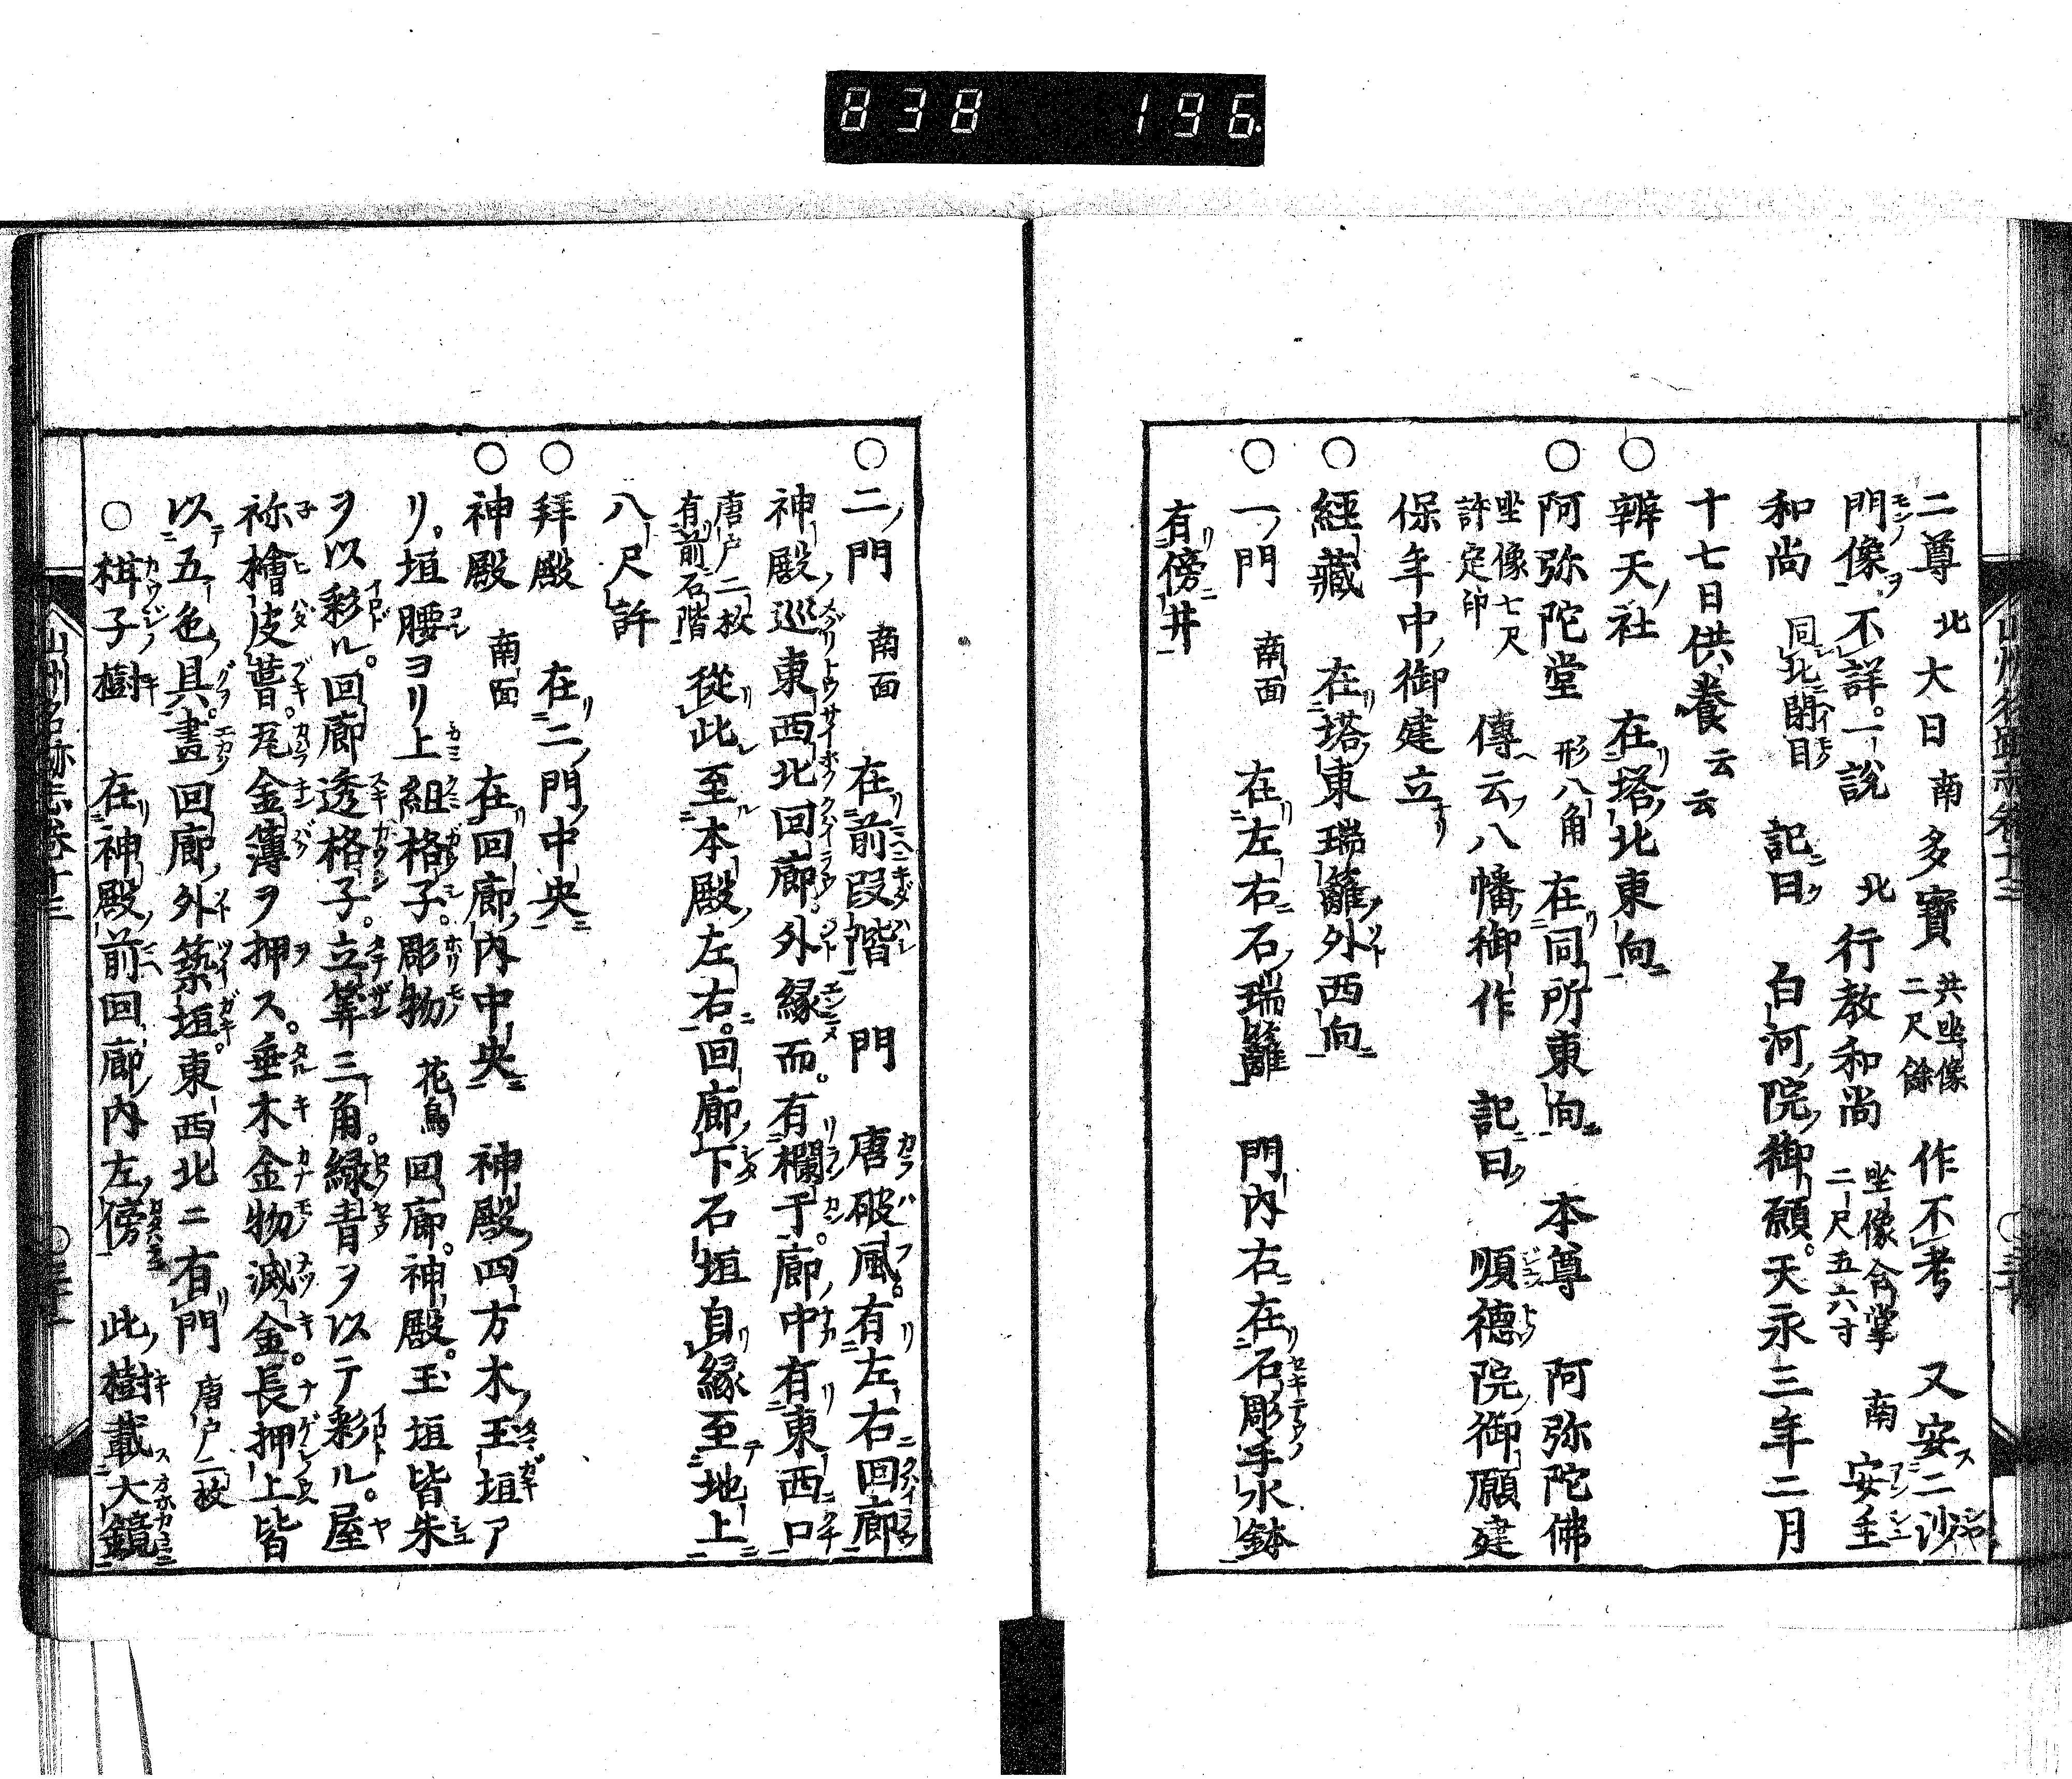 838 196
二尊 北 大日 南 多寶 共坐像二尺餘 作不考 又安二沙
門像ヲ不詳。一說 北 行教和尚 坐像合掌二尺五六寸 南 安主
和尚 同北閉目 記曰 白河院御願。天永三年二月
十七日供養云云
○辨天社 在塔北東向
○阿弥陀堂 形八角 在同所東向 本尊 阿弥陀佛
坐像七尺許定印 傳云八幡御作 記曰 順德院御願建
保年中御建立
○經藏 在塔東瑞籬外西向
○一門 南面 在左右石瑞籬 門內右在石彫手水鉢
有傍井
○二門 南面 在前段階 門 唐破風有左右回廊
神殿巡東西北回廊外縁而。有欄干。廊中有東西口
唐戸二枚有前石階 從此至本殿左右。回廊下石垣自縁至地上
八尺許
○拜殿 在二門中央
○神殿 南面 在回廊內中央 神殿四方木玉垣ア
リ。垣腰ヨリ上組格子。彫物 花鳥 回廊。神殿。玉垣皆朱
ヲ以彩ル。回廊透格子。立 三角。緑青ヲ以テ彩ル。屋
祢檜皮葺。瓦金薄ヲ押ス。垂木金物滅金。長押上皆
以五色具。畫回廊外築垣。東西北ニ有門 唐戸二枚
○柑子樹 在神殿前回廊內左傍 此樹載大鏡
山州名跡志卷十三